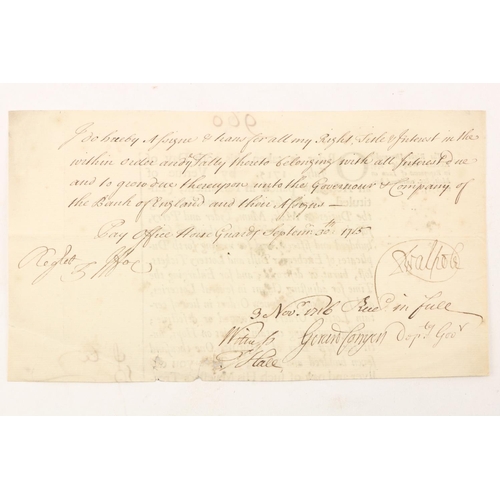 I do hereby Assigne & transfer all my Right, Title & Interest in the
within Order and ye Tally thereto belonging with all Interest due
and to grow due thereupon unto the Governour & Company of
the Bank of England and their Assigns —
Pay Office Horse Guards Septem: 30th 1715
RWalpole
3 Novr. 1716 Recd. in full
Witness Gerard Conyers Depy Govr
Hall